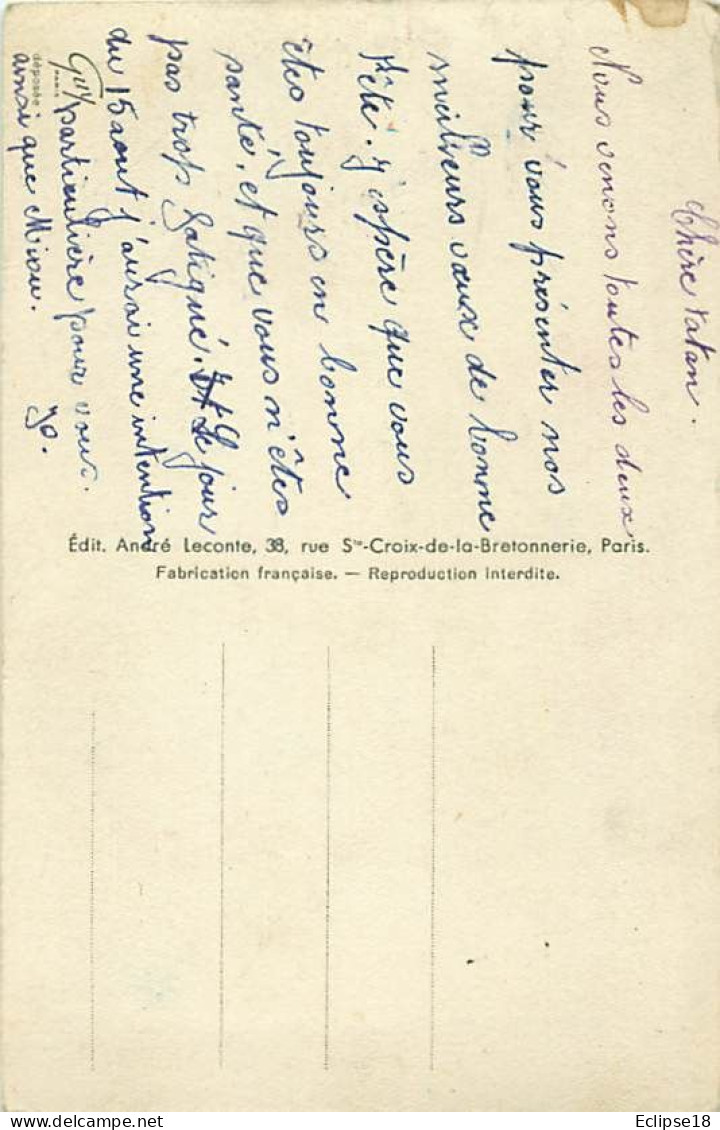 Chère Tatan.
Nous venons toutes les deux
pour vous présenter nos
meilleurs vœux de bonne
fête. J'espère que vous
êtes toujours en bonne
santé, et que vous n'êtes
pas trop fatigué. Le jour
du 15 aout j'aurai une intention
particulière pour vous.
ainsi que Miou.
Jo.
Guy
PARIS
déposée
Édit. André Leconte, 38, rue Ste-Croix-de-la-Bretonnerie, Paris.
Fabrication française. — Reproduction interdite.
Eclipse18